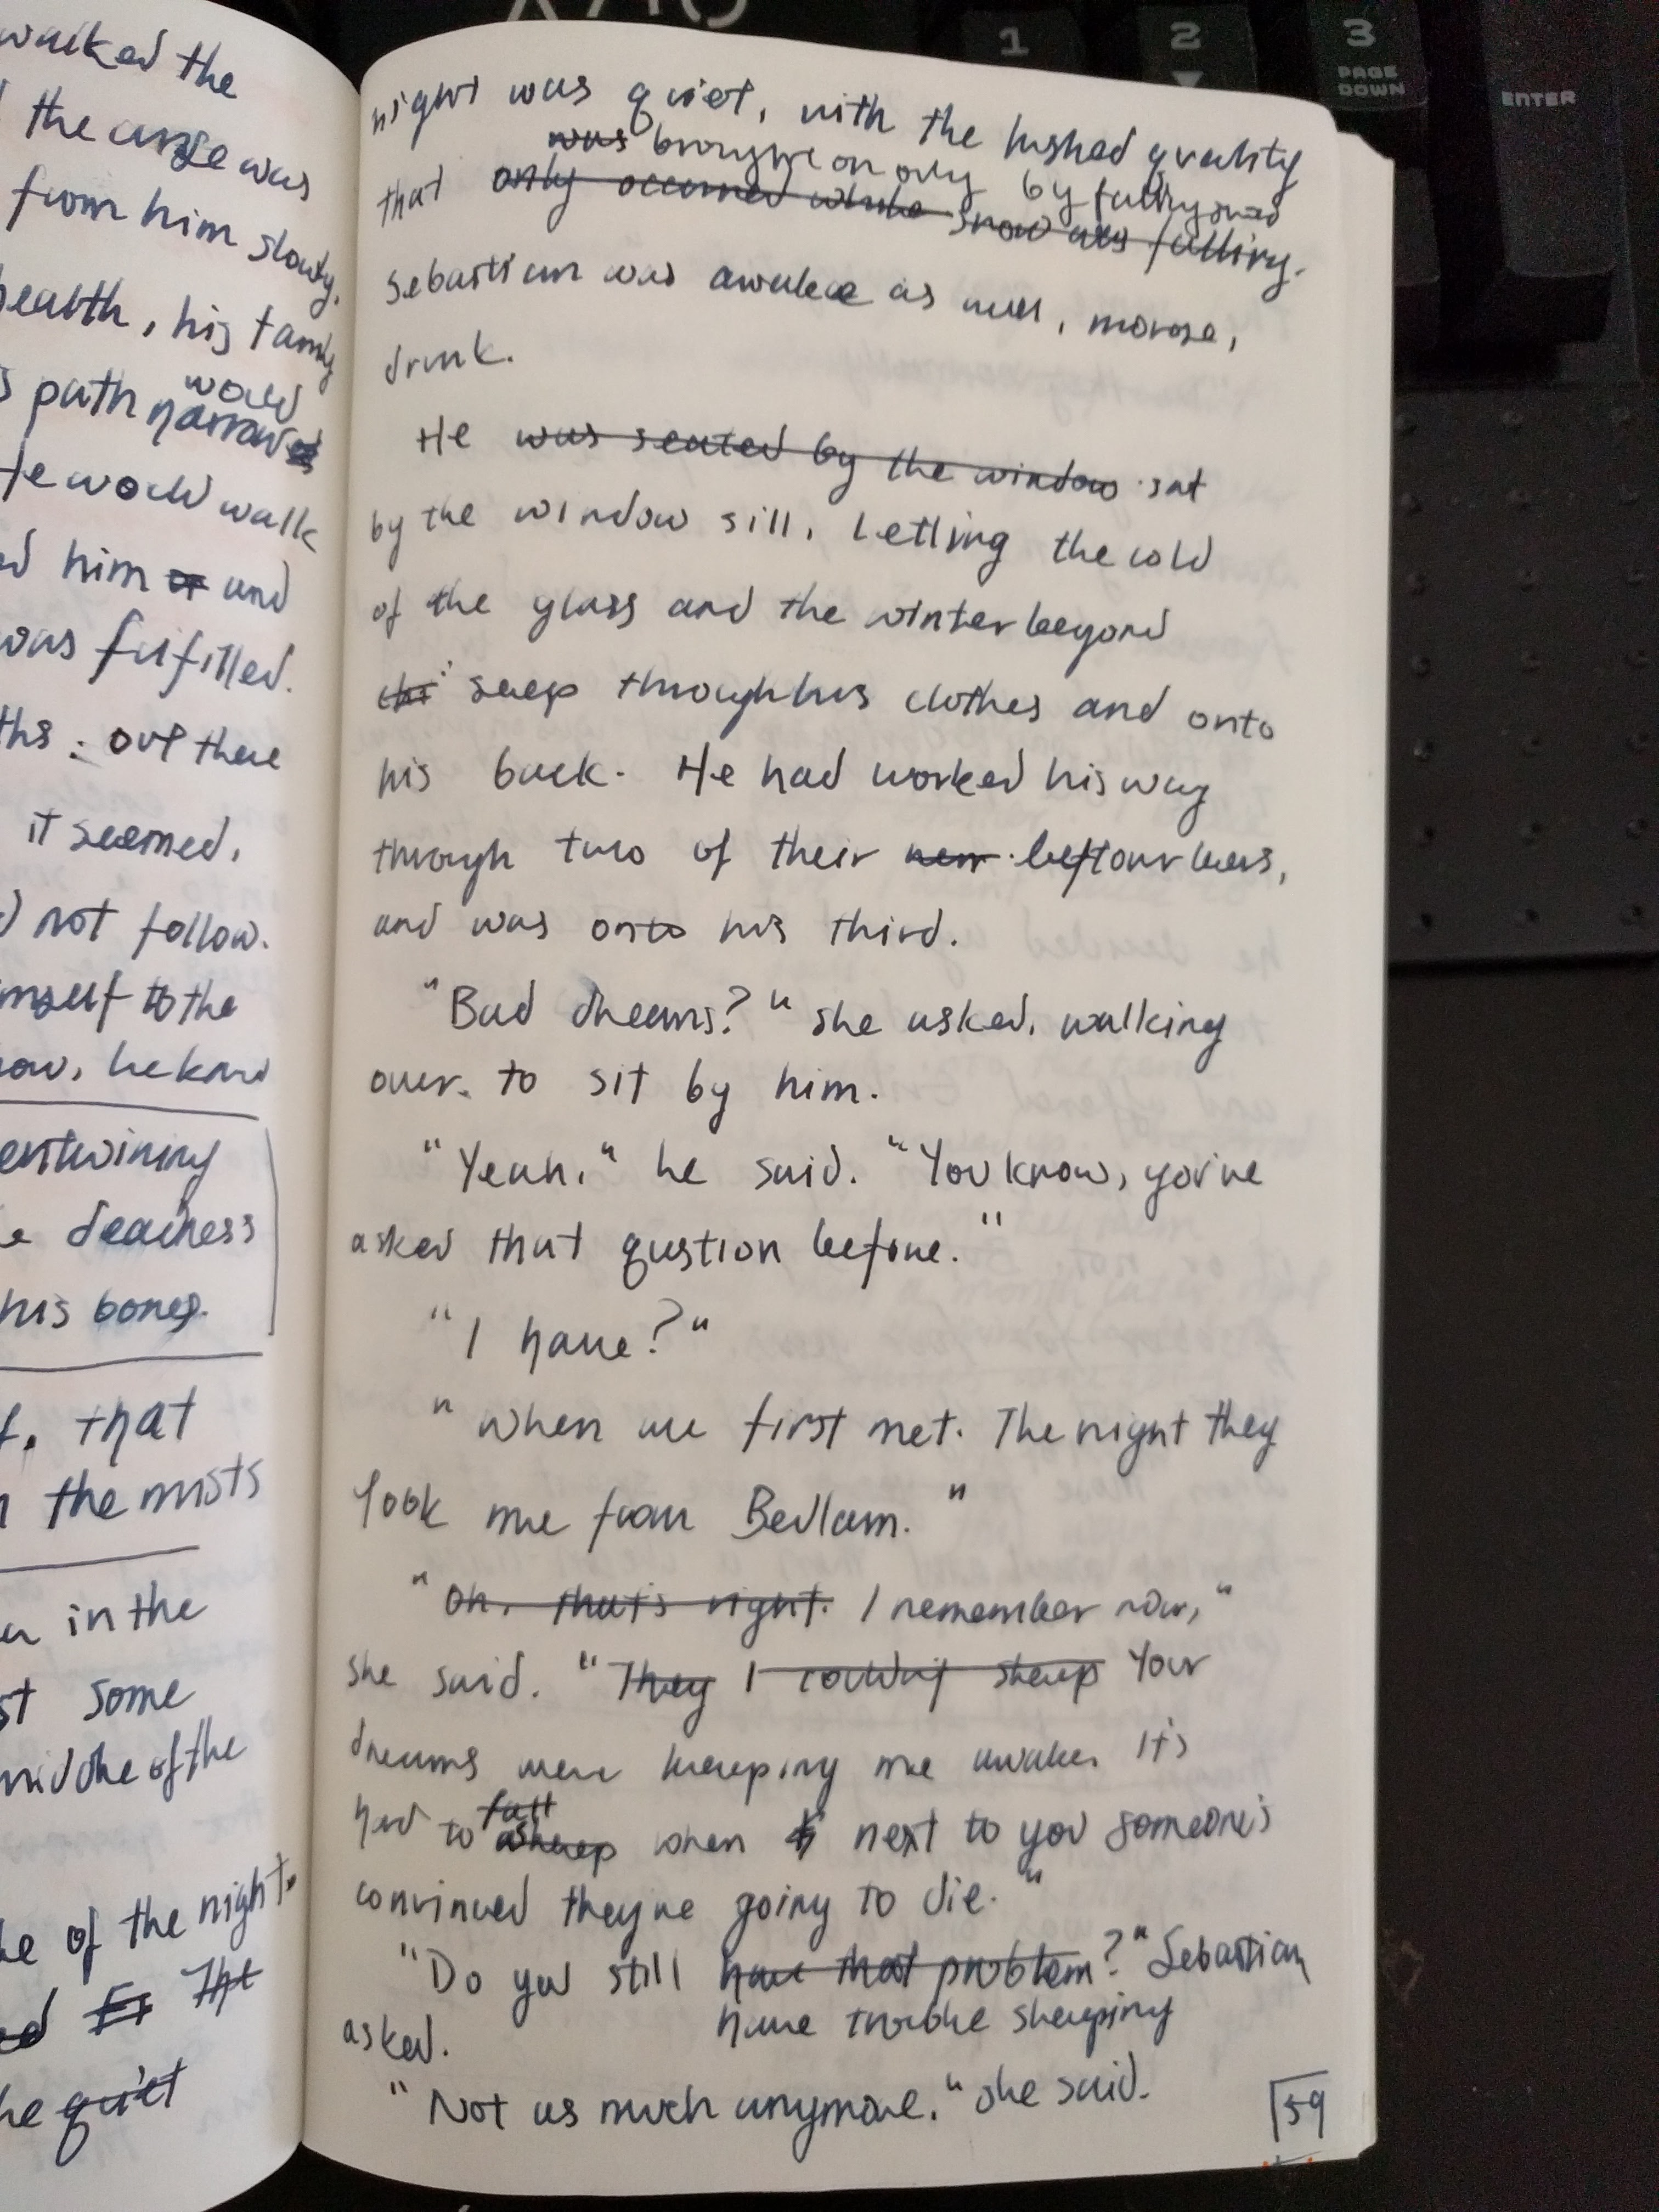 1
2
3
PAGE
DOWN
ENTER
walked the
the curse was
from him slowly.
health, his family
would
path narrow
He would walk
him or and
was fulfilled.
ths: out there
it seemed,
not follow.
himself to the
now, he knew
entwining
deadness
his bones.
that
the mists
in the
some
middle of the
of the night.
The
quiet
night was quiet, with the hushed quality
was brought on only by falling snow
that only occurred while snow was falling.
Sebastian was awake as well, morose,
drunk.
He was seated by the window sat
by the window sill, letting the cold
of the glass and the winter beyond
seep through his clothes and onto
his back. He had worked his way
through two of their new leftour beers,
and was onto his third.
"Bad dreams?" she asked, walking
over to sit by him.
"Yeah," he said. "You know, you've
asked that question before."
"I have?"
"When we first met. The night they
took me from Bedlam."
"Oh, that's right. I remember now,"
she said. "They I couldn't sleep Your
dreams were keeping me awake. It's
fall
hard to asleep when next to you someone's
convinced they're going to die."
"Do you still have that problem?" Sebastian
have trouble sleeping
asked.
"Not as much anymore," she said.
59